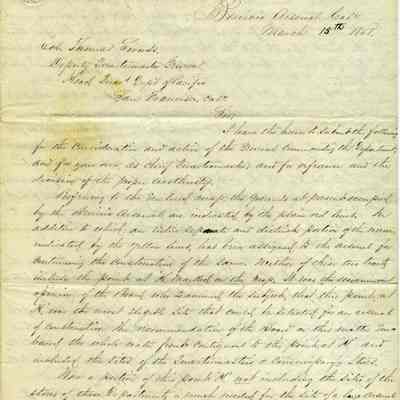 Benicia Arsenal, Cala
March 15th 185
Col. Thomas
Deputy Quartermaster General
Head Quars Dept of Pacific
San Francisco, Cala
Sir,
I have the honor to submit the following
for the consideration and action of the General Commanding the Department,
and for your own as Chief Quartermaster, and for reference and the
decision of the proper authority.
Referring to the enclosed map, the grounds at present occupied
by the Benicia Arsenal are indicated by the plain red limits. In
addition to which, an entire separate and distinct portion of the
indicated by the yellow limits, has been assigned to the arsenal for
continuing the construction of the same. Neither of these two tracts
include the point at K marked on the map. It was the unanimous
opinion of the Board who examined the subject, that this point at
K was the most eligible site that could be selected for an arsenal
of construction. The recommendation of the Board on this matter
the whole water front contiguous to this point at K and
included the sites of the Quartermasters & Commissary's Stores.
Now a portion of this point K not including the sites of the
stores of these Departments, is much needed for the site of a